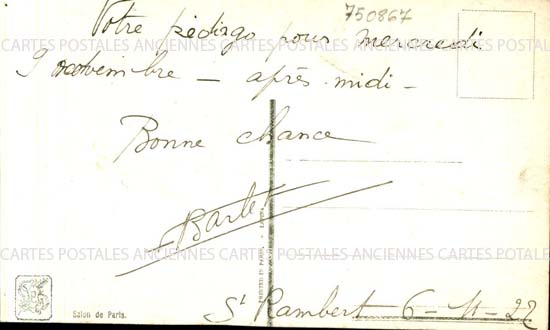 750867
Votre pédzgo pour mercredi
CARTES POSTALES ANCIENNES CARTES POSTALES ANCIENNES CARTES POSTALES ANCIENNES
9 novembre — après-midi —
Bonne chance
Barlet
CARTES POSTALES ANCIENNES CARTES POSTALES ANCIENNES CARTES POSTALES ANCIENNES
PRINTED IN PARIS
Salon de Paris.
St Rambert 6-11-27